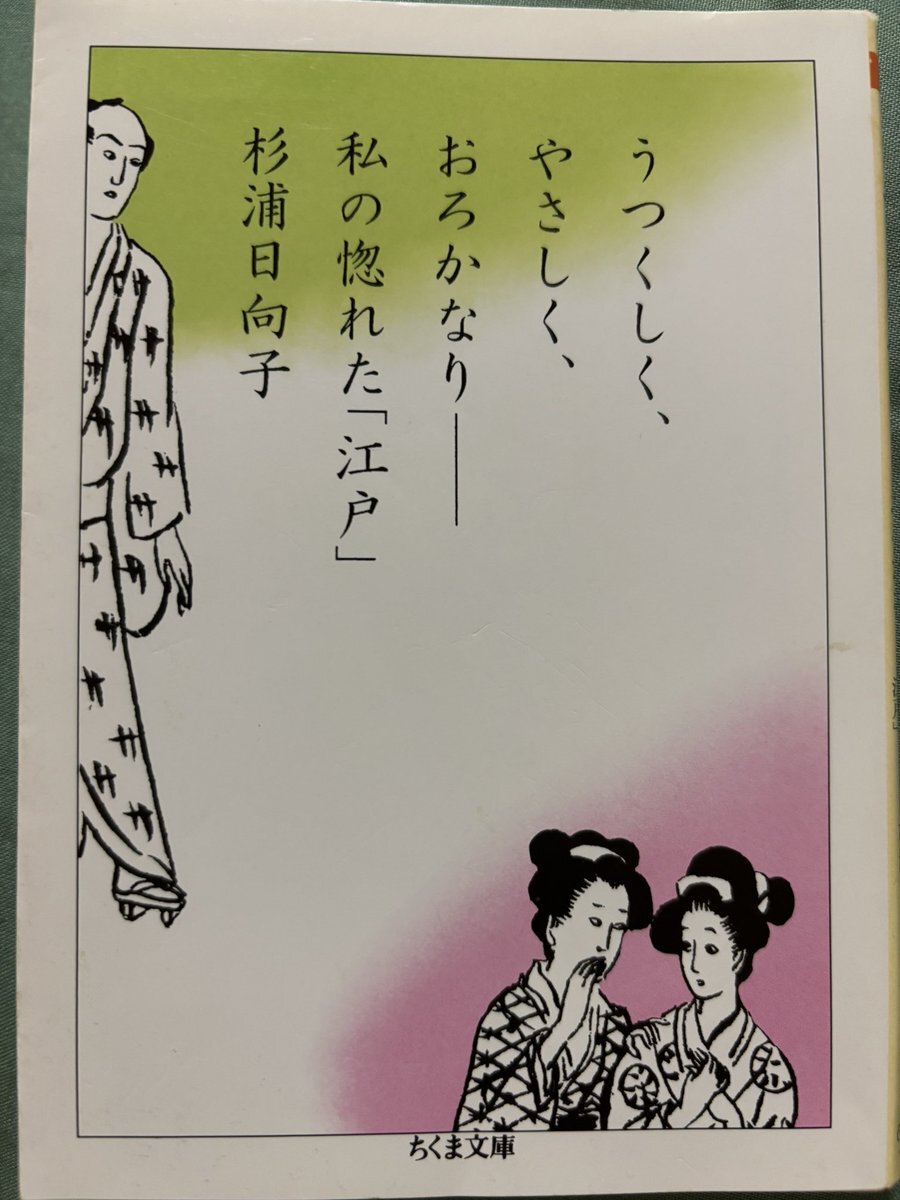 うつくしく、
やさしく、
おろかなり――
私の惚れた「江戸」
杉浦日向子
ちくま文庫